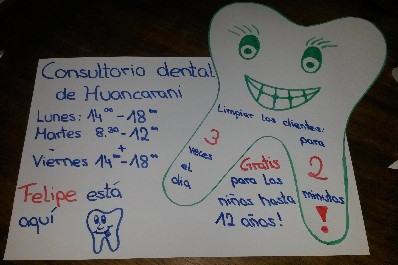 Consultorio dental
de Huancarani
Lunes: 14⁰⁰-18⁰⁰
Martes 8.30-12⁰⁰
+
Viernes 14⁰⁰-18⁰⁰
Felipe está
aquí
Limpiar los dientes:
3
veces
el
día
para
2
minutos
!
Gratis
para los
niños hasta
12 años!